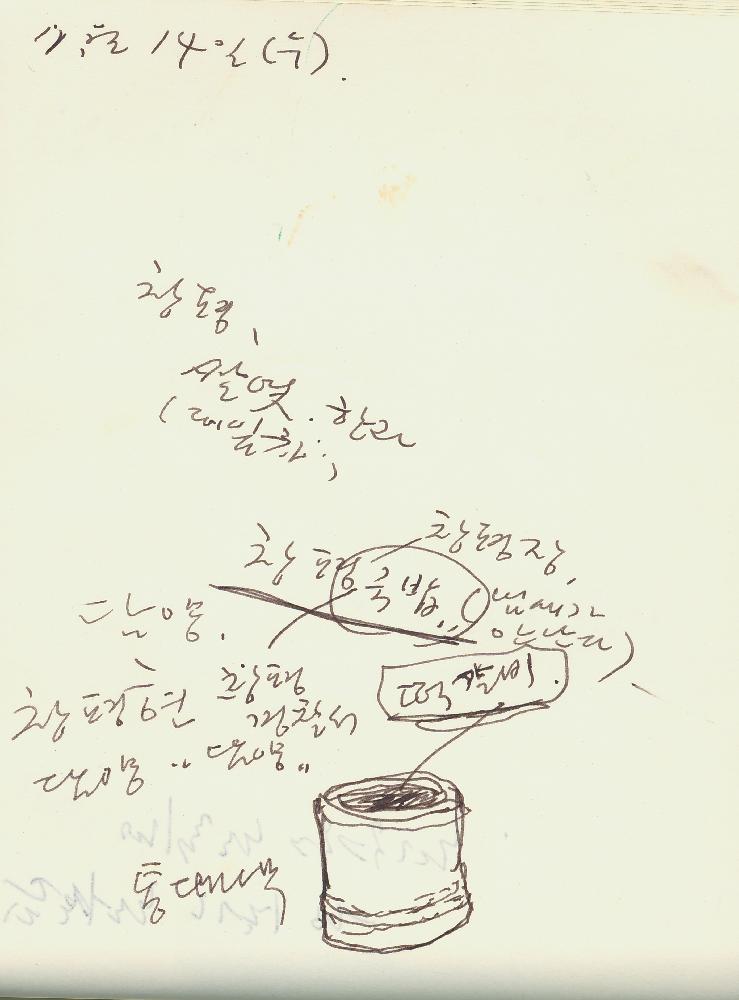 11월 14일(수).
창평,
쌀엿. 한과
창평 국밥 창평장,
(냄새가
안난다)
담양.
창평현 창평
경찰서
떡갈비.
담양 "담양"
통대나무